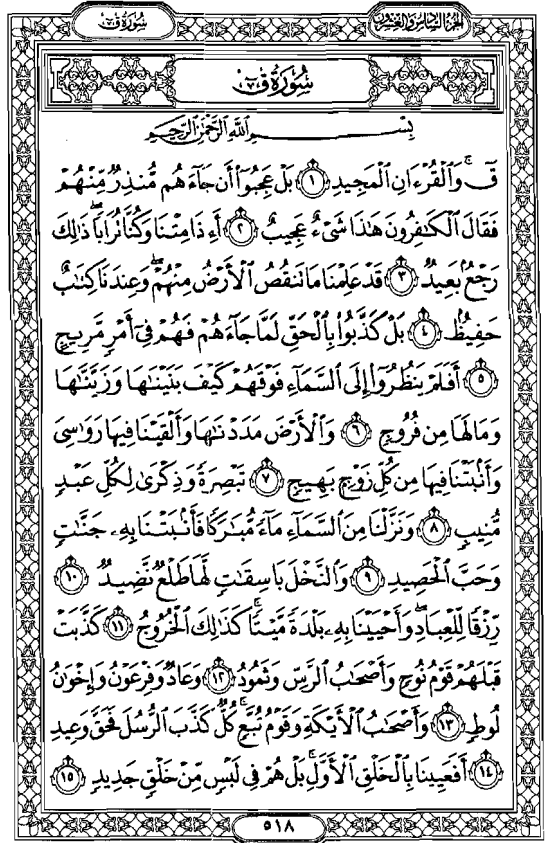 سُورَةُ قٓ
الجزء السادس والعشرون
سُورَةُ قٓ
بِسْمِ ٱللَّهِ ٱلرَّحْمَٰنِ ٱلرَّحِيمِ
قٓۚ وَٱلْقُرْءَانِ ٱلْمَجِيدِ ١ بَلْ عَجِبُوٓا۟ أَن جَآءَهُم مُّنذِرٌ مِّنْهُمْ
فَقَالَ ٱلْكَٰفِرُونَ هَٰذَا شَىْءٌ عَجِيبٌ ٢ أَءِذَا مِتْنَا وَكُنَّا تُرَابًاۖ ذَٰلِكَ
رَجْعٌۢ بَعِيدٌ ٣ قَدْ عَلِمْنَا مَا تَنقُصُ ٱلْأَرْضُ مِنْهُمْۖ وَعِندَنَا كِتَٰبٌ
حَفِيظٌۢ ٤ بَلْ كَذَّبُوا۟ بِٱلْحَقِّ لَمَّا جَآءَهُمْ فَهُمْ فِىٓ أَمْرٍ مَّرِيجٍ
٥ أَفَلَمْ يَنظُرُوٓا۟ إِلَى ٱلسَّمَآءِ فَوْقَهُمْ كَيْفَ بَنَيْنَٰهَا وَزَيَّنَّٰهَا
وَمَا لَهَا مِن فُرُوجٍ ٦ وَٱلْأَرْضَ مَدَدْنَٰهَا وَأَلْقَيْنَا فِيهَا رَوَٰسِىَ
وَأَنۢبَتْنَا فِيهَا مِن كُلِّ زَوْجٍۭ بَهِيجٍ ٧ تَبْصِرَةً وَذِكْرَىٰ لِكُلِّ عَبْدٍ
مُّنِيبٍ ٨ وَنَزَّلْنَا مِنَ ٱلسَّمَآءِ مَآءً مُّبَٰرَكًا فَأَنۢبَتْنَا بِهِۦ جَنَّٰتٍ
وَحَبَّ ٱلْحَصِيدِ ٩ وَٱلنَّخْلَ بَاسِقَٰتٍ لَّهَا طَلْعٌ نَّضِيدٌ ١٠
رِّزْقًا لِّلْعِبَادِۖ وَأَحْيَيْنَا بِهِۦ بَلْدَةً مَّيْتًاۚ كَذَٰلِكَ ٱلْخُرُوجُ ١١ كَذَّبَتْ
قَبْلَهُمْ قَوْمُ نُوحٍ وَأَصْحَٰبُ ٱلرَّسِّ وَثَمُودُ ١٢ وَعَادٌ وَفِرْعَوْنُ وَإِخْوَٰنُ
لُوطٍ ١٣ وَأَصْحَٰبُ ٱلْأَيْكَةِ وَقَوْمُ تُبَّعٍۚ كُلٌّ كَذَّبَ ٱلرُّسُلَ فَحَقَّ وَعِيدِ
١٤ أَفَعَيِينَا بِٱلْخَلْقِ ٱلْأَوَّلِۚ بَلْ هُمْ فِى لَبْسٍ مِّنْ خَلْقٍ جَدِيدٍ ١٥
٥١٨